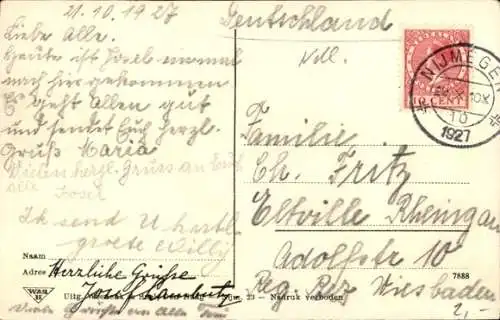 21.10.1927
Liebe Alle.
Heute ist Josef einmal
nach hier gekommen
Es geht Allen gut
und sendet Euch herzl.
Gruß Maria
Vielen herzl. Gruss an Euch
alle Josef
Ik send U hartl.
groete Willy
Naam
Adres Herzliche Grüsse
Josef
WBR
Uitg.
23 - Nadruk verboden
Viele Grüsse an alle
Deutschland
Ndl.
NEDERLAND
CENT
NIJMEGEN
10
1927
Familie
Ch. Fritz
Eltville Rheingau
Adolfste 10
Reg. Bez Wiesbaden
7888
2,-